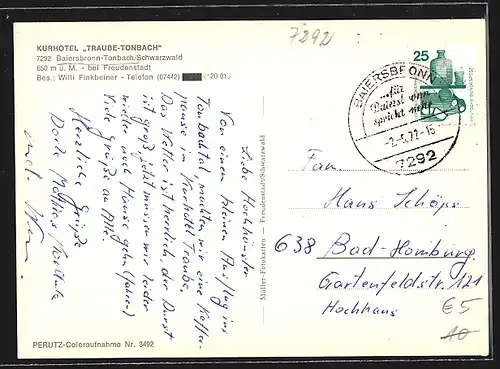 KURHOTEL „TRAUBE-TONBACH"
7292 Baiersbronn-Tonbach/Schwarzwald
650 m ü. M. - bei Freudenstadt
Bes.: Willi Finkbeiner - Telefon (07442) (*20 01)
7292
25
BAIERSBRONN
...für
Baiersbronn
spricht vieles
-5.72-16
7292
Liebe Hochhäusler
Von einem kleinen Ausflug ins
Tonbachtal machten wir eine Kaffee-
pause im Kurhotel Traube.
Das Wetter ist herrlich, der Durst
ist groß, jetzt müssen wir leider
wieder nach Hause gehn (fahren)
Viele Grüße an Alle.
Herzliche Grüße
Müller-Fotokarten — Freudenstadt/Schwarzwald
Fam.
Hans Schöps
638 Bad-Homburg
Gartenfeldstr. 121
Hochhaus
€5
10
PERUTZ-Coloraufnahme Nr. 3492